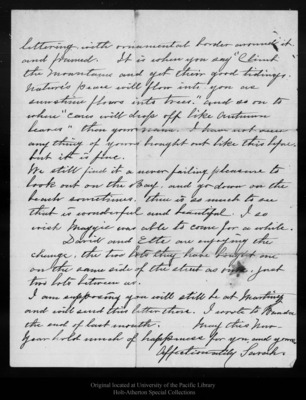 lettering with ornamental border around it
and framed. It is when you say "Climb
the mountains and get their good tidings.
Nature's peace will flow into you as
sunshine flows into trees." and so on to
where "cares will drop off like Autumn
leaves" then your name. I have not seen
any thing of yours brought out like this before,
but it is fine.
We still find it a never failing pleasure to
look out on the Bay. and go down on the
beach sometimes. there is so much to see
that is wonderful and beautiful. I so
wish Maggie was able to come for a while.
David and Etta are enjoying the
change. the two lots they have bought are
on the same side of the street as ours. just
two lots between us.
I am supposing you will still be at Martinez
and will send this letter there. I wrote to Wanda
the end of last month. May this New
Year hold much of happiness for you, and yours
Affectionately Sarah.
Original located at University of the Pacific Library
Holt-Atherton Special Collections